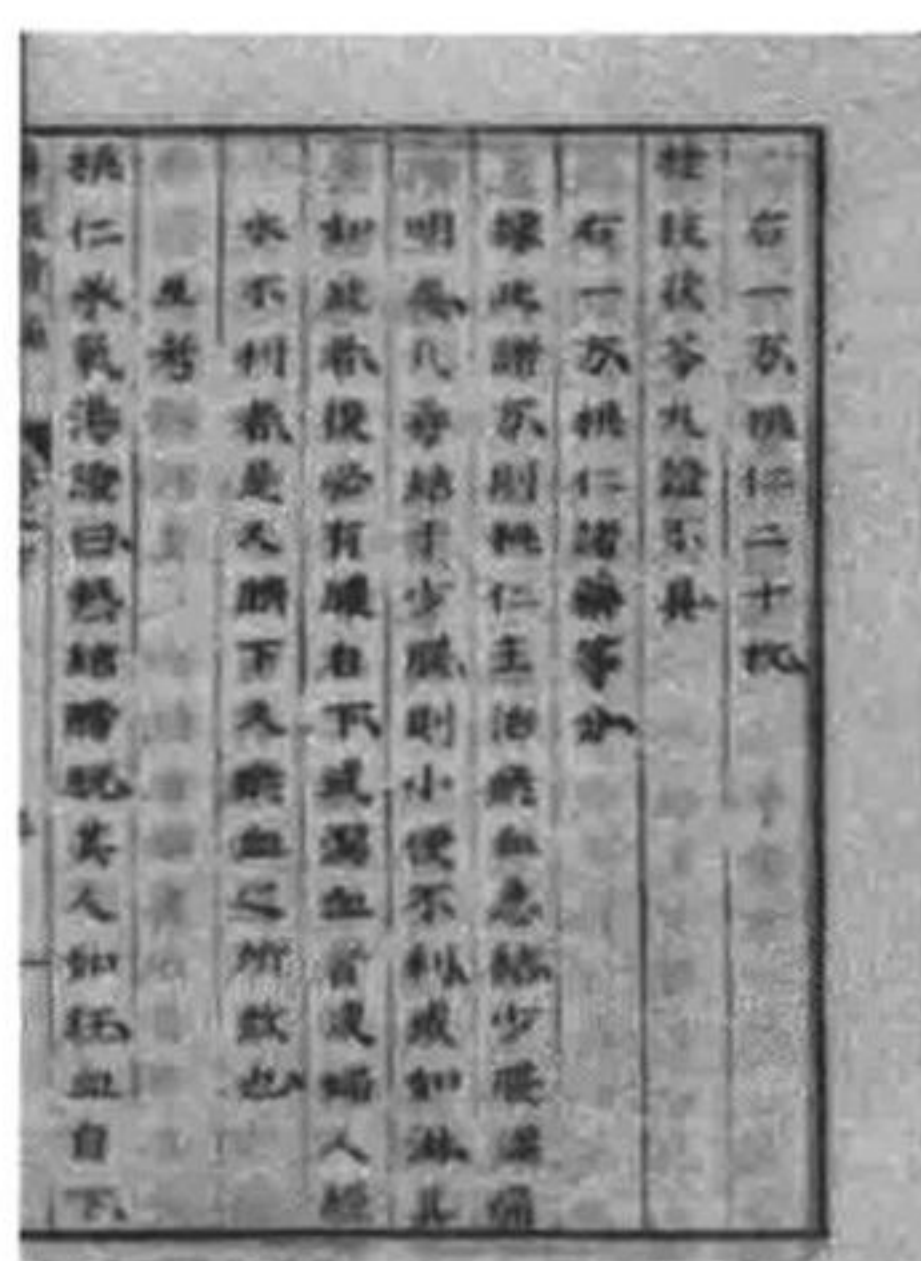 右一方桃仁二十枚
桂枝茯苓丸證不具
右一方桃仁諸藥等分
據此諸方則桃仁主治瘀血急結少腹滿痛
明矣凡毒結于少腹則小便不利或如淋其
如此者後必有膿自下或瀉血婦人經
水不利者是又臍下久瘀血之所致也
互考
桃仁承氣湯證曰熱結膀胱其人如狂血自下